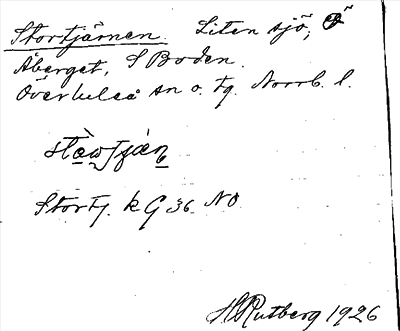 Stortjärnen. Liten sjö, Ö
Åberget, S Boden.
Överluleå sn o. tg. Norrb. l.
Stortj. kG 36. NO
HRutberg 1926